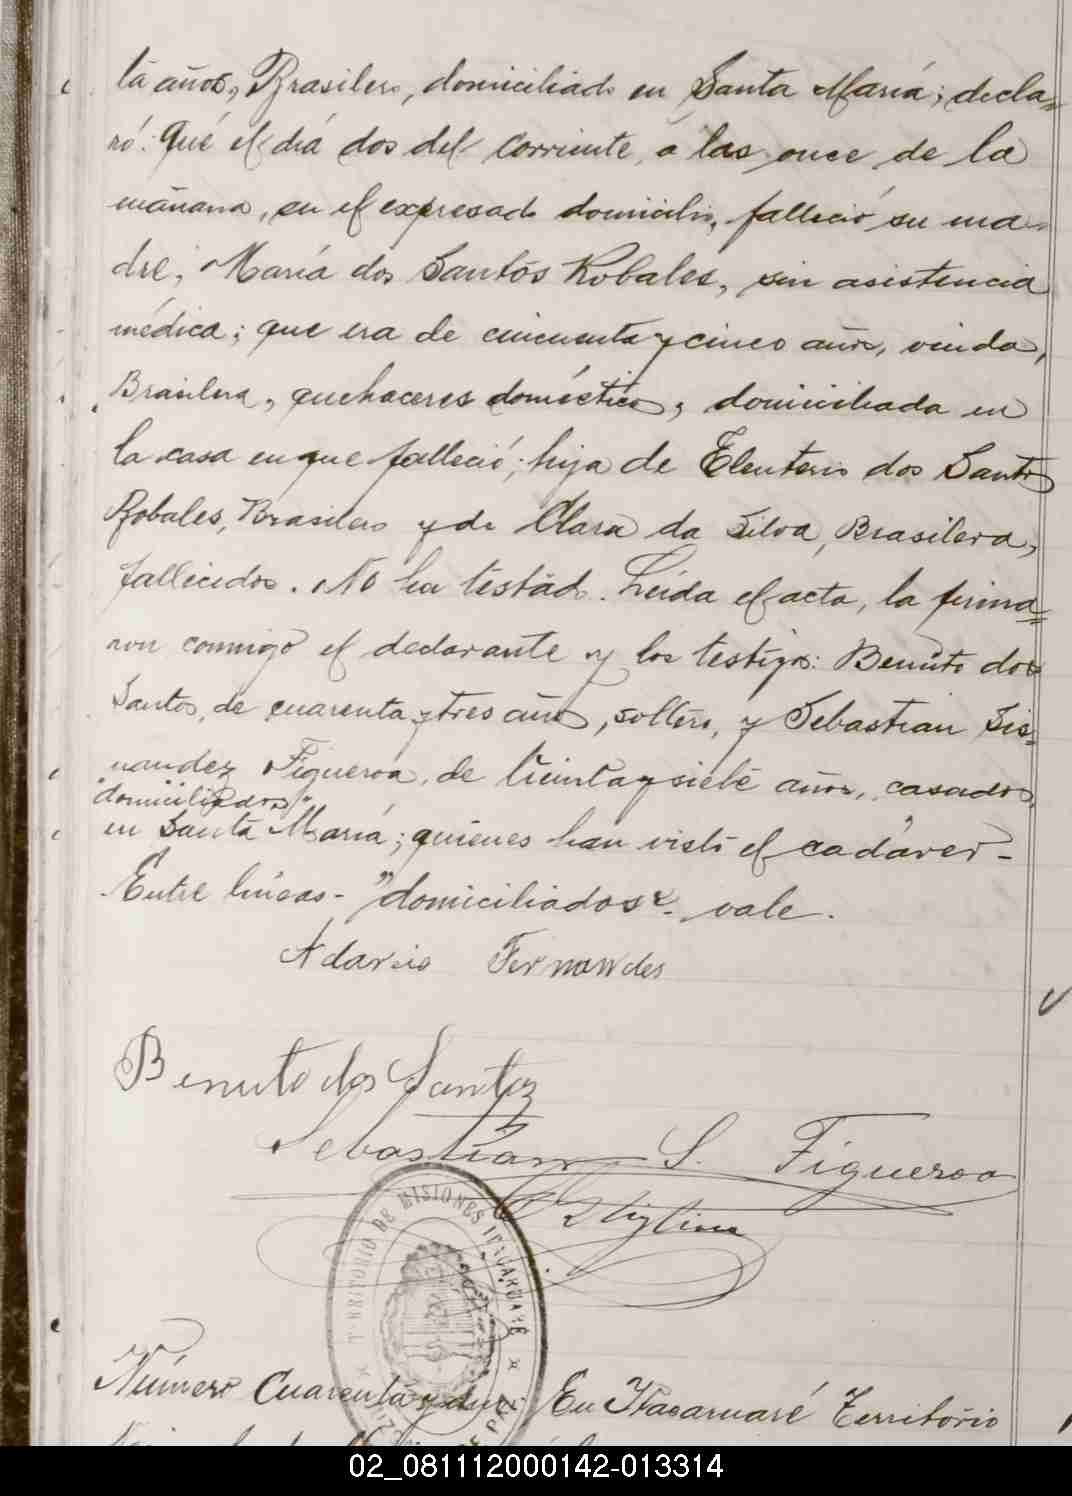 ta años, Brasilero, domiciliado en Santa María; decla=
ró: Qué el día dos del corriente, a las once de la
mañana, en el expresado domicilio, falleció su ma-
dre, María dos Santos Robales, sin asistencia
médica; que era de cincuenta y cinco años, viuda,
Brasilera, quehaceres domésticos, domiciliada en
la casa en que falleció; hija de Eleuterio dos Santos
Robales, Brasilero y de Clara da Silva, Brasilera,
fallecidos. No ha testado. Leída el acta, la firma=
ron conmigo el declarante y los testigos: Benuto dos
Santos, de cuarenta y tres años, soltero, y Sebastian Sis=
nandez Figueroa, de treinta y siete años, casado,
"domiciliados"
en Santa María; quienes han visto el cadáver-
Entre líneas- "domiciliados"- vale.
Adarcio Fernandes
Benuto dos Santos
Sebastian S. Figueroa
TERRITORIO DE MISIONES
Número Cuarenta y dos: En Itacaruaré Territorio
02_081112000142-013314